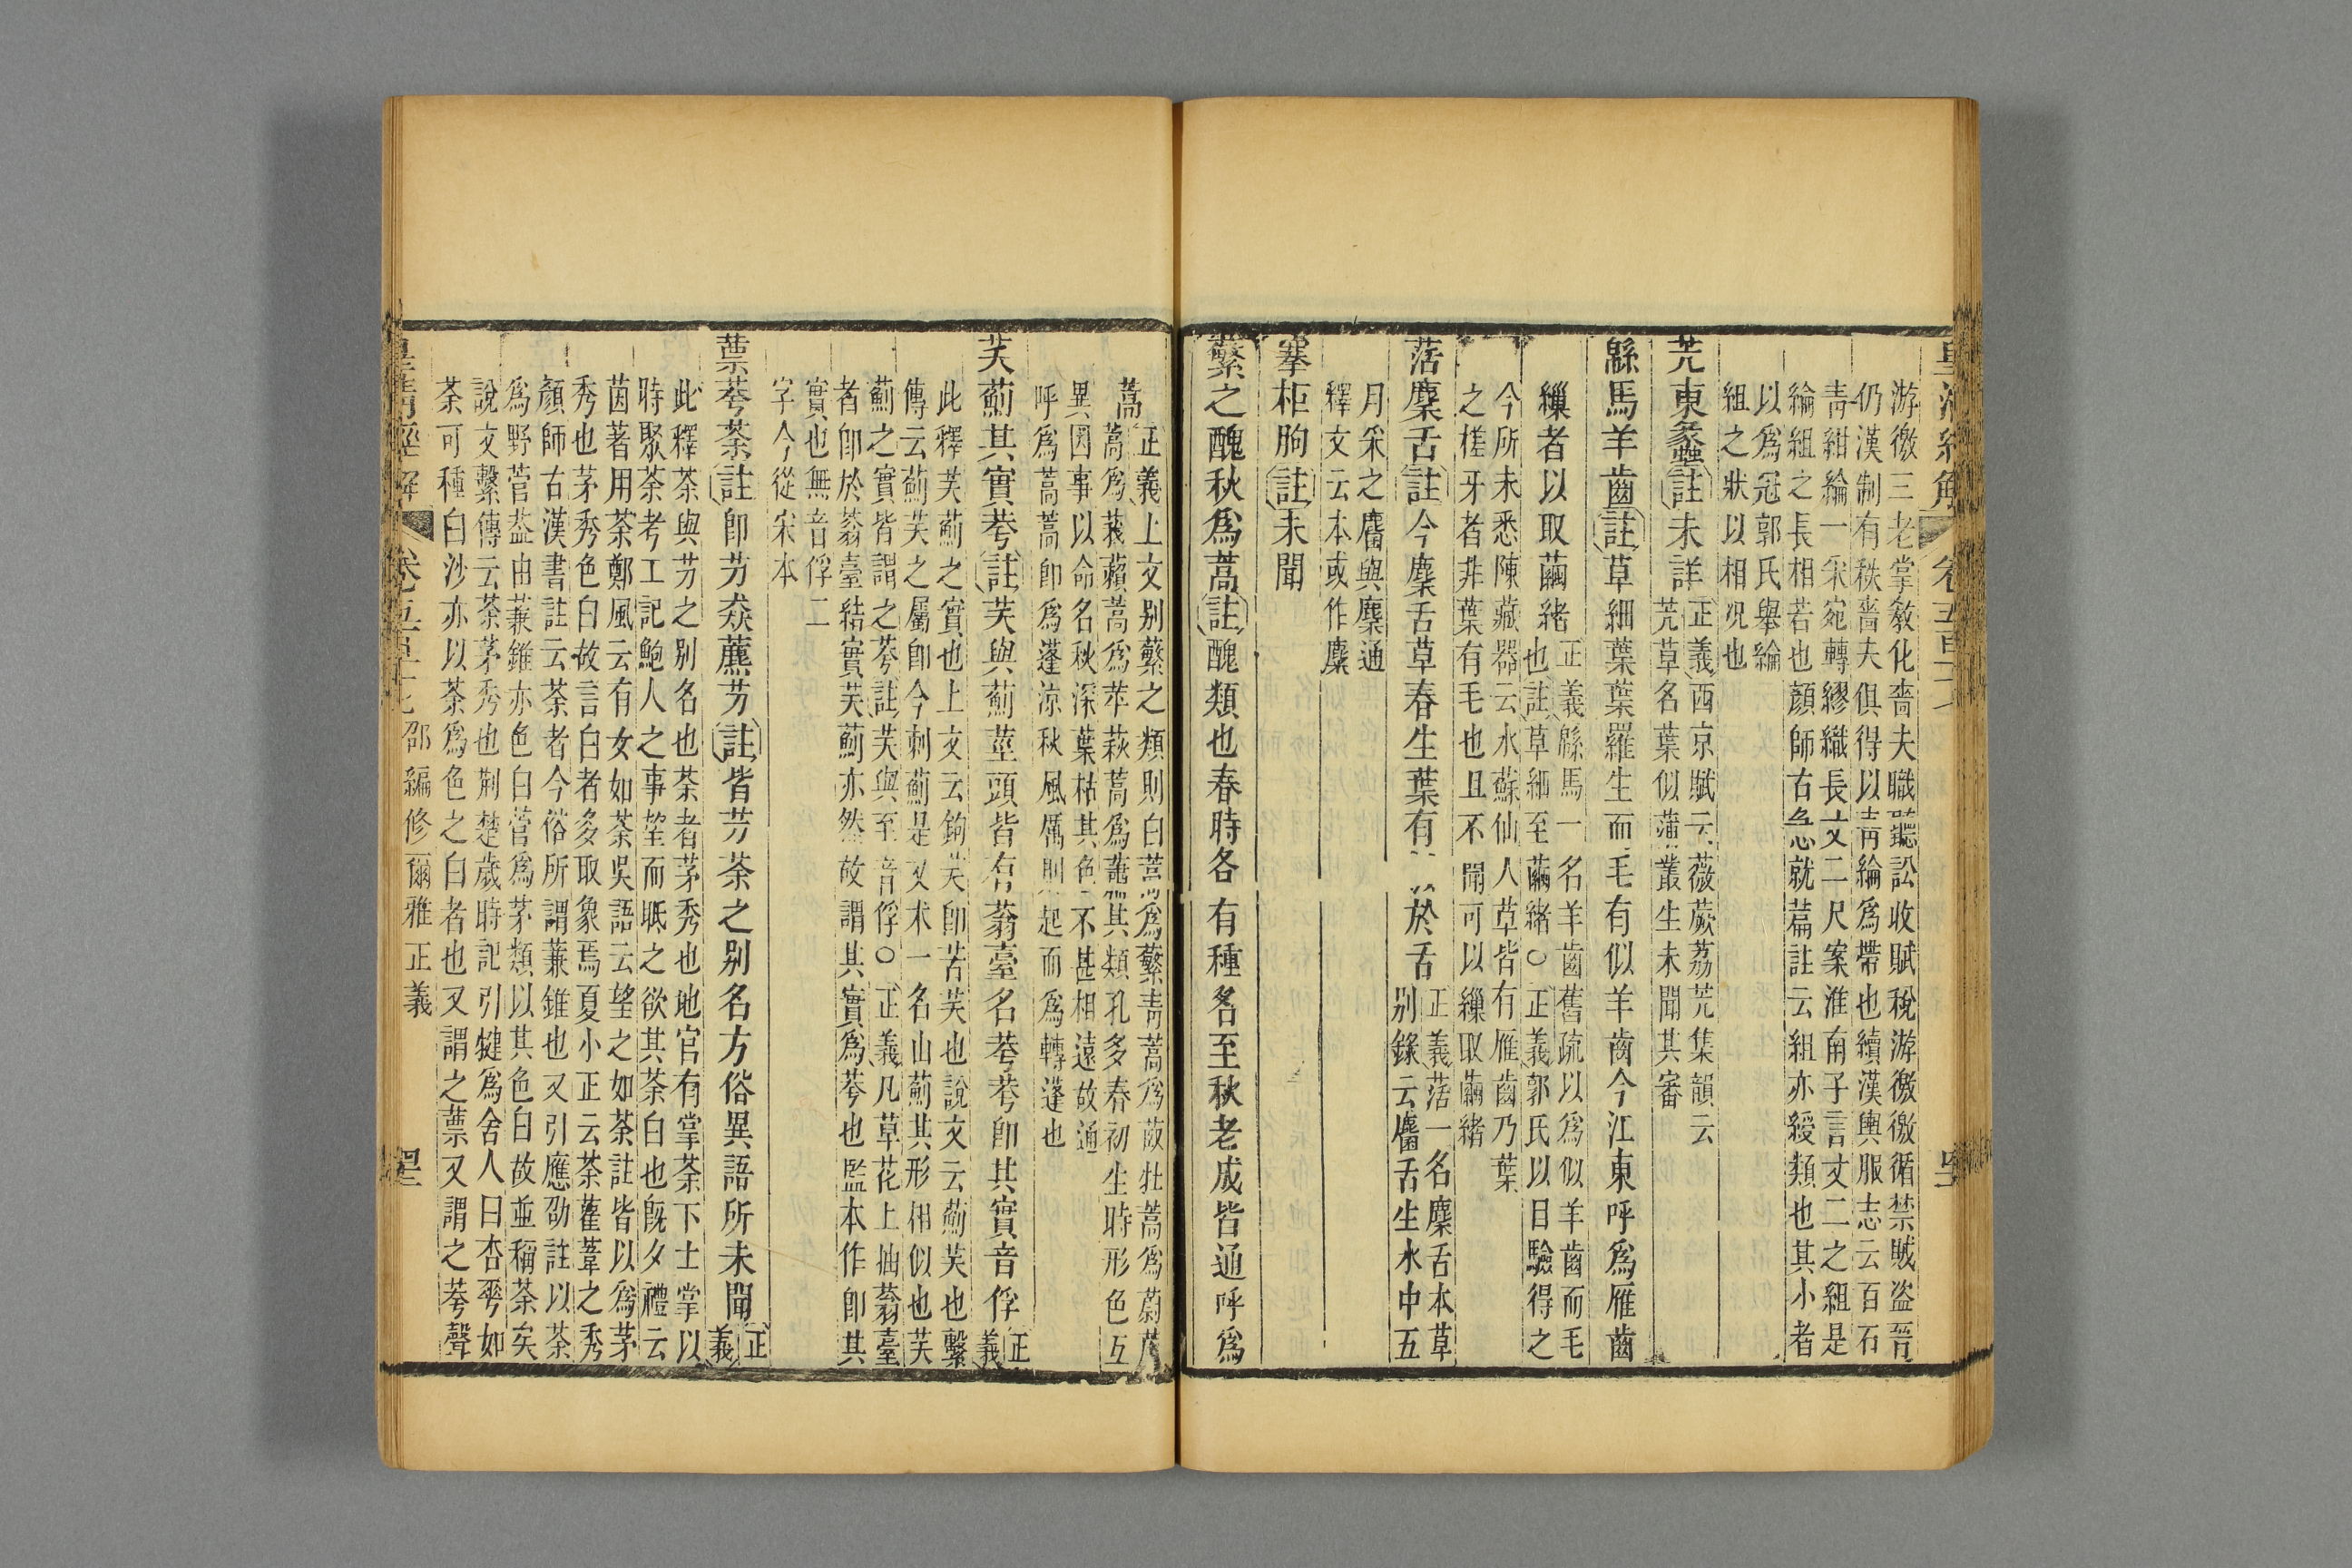 游徼三老掌敎化嗇夫職聽訟收賦稅游徼徼循禁賊盗晉
仍漢制有秩嗇夫俱得以靑綸爲帶也續漢輿服志云百石
靑紺綸一采宛轉繆織長丈二尺案淮南子言丈二之組是
綸組之長相若也顏師古急就篇註云組亦綬類也其小者
以爲冠郭氏舉綸
組之狀以相况也
芏東蠡註未詳
正義西京賦云薇蕨荔芏集韻云
芏草名葉似蒲叢生未聞其審
緜馬羊齒註草細葉葉羅生而毛有似羊齒今江東呼爲雁齒
繅者以取繭緒
正義緜馬一名羊齒舊疏以爲似羊齒而毛
也註草細至繭緒○正義郭氏以目驗得之
今所未悉陳藏器云水蘇仙人草皆有雁齒乃葉
之槎牙者非葉有毛也且不聞可以繅取繭緒
萿麋舌註今麋舌草春生葉有 於舌
正義萿一名麋舌本草
别錄云麕舌生水中五
月采之麕與麋通
釋文云本或作麋
搴柜朐註未聞
蘩之醜秋爲蒿註醜類也春時各有種名至秋老成皆通呼爲
蒿
正義上文别蘩之類則白蒿爲蘩靑蒿爲菣牡蒿爲蔚莪
蒿爲莪藾蒿爲苹萩蒿爲蕭其類孔多春初生時形色互
異因事以命名秋深葉枯其色不甚相遠故通
呼爲蒿蒿卽爲蓬涼秋風厲則起而爲轉蓬也
芺薊其實荂註芺與薊莖頭皆有蓊臺名荂荂卽其實音俘
正義
此釋芺薊之實也上文云鉤芺卽苦芺也說文云薊芺也繫
傳云薊芺之屬卽今刺薊是又朮一名山薊其形相似也芺
薊之實皆謂之荂註芺與至音俘○正義凡草花上抽蓊臺
者卽於蓊臺結實芺薊亦然故謂其實爲荂也監本作卽其
實也無音俘二
字今從宋本
藨荂荼註卽芀猋藨芀註皆芀荼之别名方俗異語所未聞
正義
此釋荼與芀之别名也荼者茅秀也地官有掌荼下士掌以
時聚荼考工記鮑人之事望而眡之欲其荼白也旣夕禮云
茵著用荼鄭風云有女如荼吳語云望之如荼註皆以爲茅
秀也茅秀色白故言白者多取象焉夏小正云荼雚葦之秀
顏師古漢書註云荼者今俗所謂蒹錐也又引應劭註以荼
爲野菅葢由蒹錐亦色白菅爲茅類以其色白故並稱荼矣
說文繫傳云荼茅秀也荆楚歲時記引犍爲舍人曰杏華如
荼可種白沙亦以荼爲色之白者也又謂之藨又謂之荂聲
皇淸經解 卷五百十七 邵編修爾雅正義